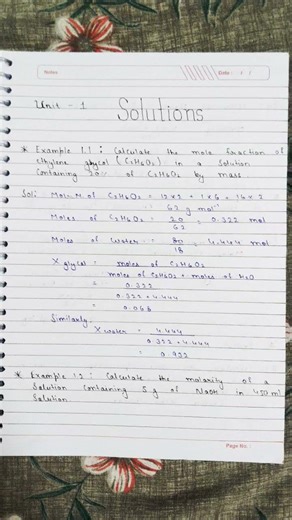 Notes
Date : / /
Unit - 1 Solutions
* Example 1.1 : Calculate the mole fraction of
ethylene glycol (C₂H₆O₂) in a solution
containing 20% of C₂H₆O₂ by mass
Sol: Mol. M. of C₂H₆O₂ = 12 × 2 + 1 × 6 + 16 × 2
= 62 g mol⁻¹
Moles of C₂H₆O₂ = 20/62 = 0.322 mol
Moles of water = 80/18 = 4.444 mol
X glycol = moles of C₂H₆O₂
moles of C₂H₆O₂ + moles of H₂O
= 0.322
0.322 + 4.444
= 0.068
Similarly,
X water = 4.444
0.322 + 4.444
= 0.932
* Example 1.2 : Calculate the molarity of a
solution containing 5 g of NaOH in 450 ml
solution.
Page No.